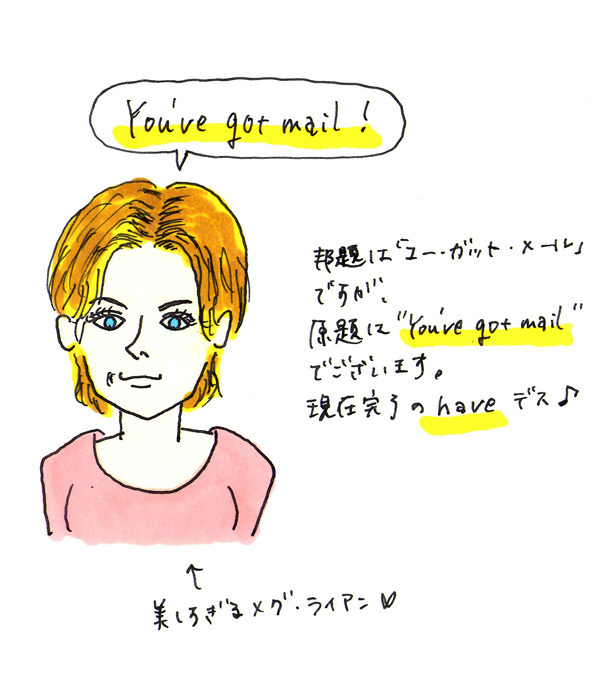 You've got mail !
邦題は「ユー・ガット・メール」
ですが、
原題は"You've got mail"
でございます。
現在完了の have デス♪
↑
美しすぎるメグ・ライアン♡